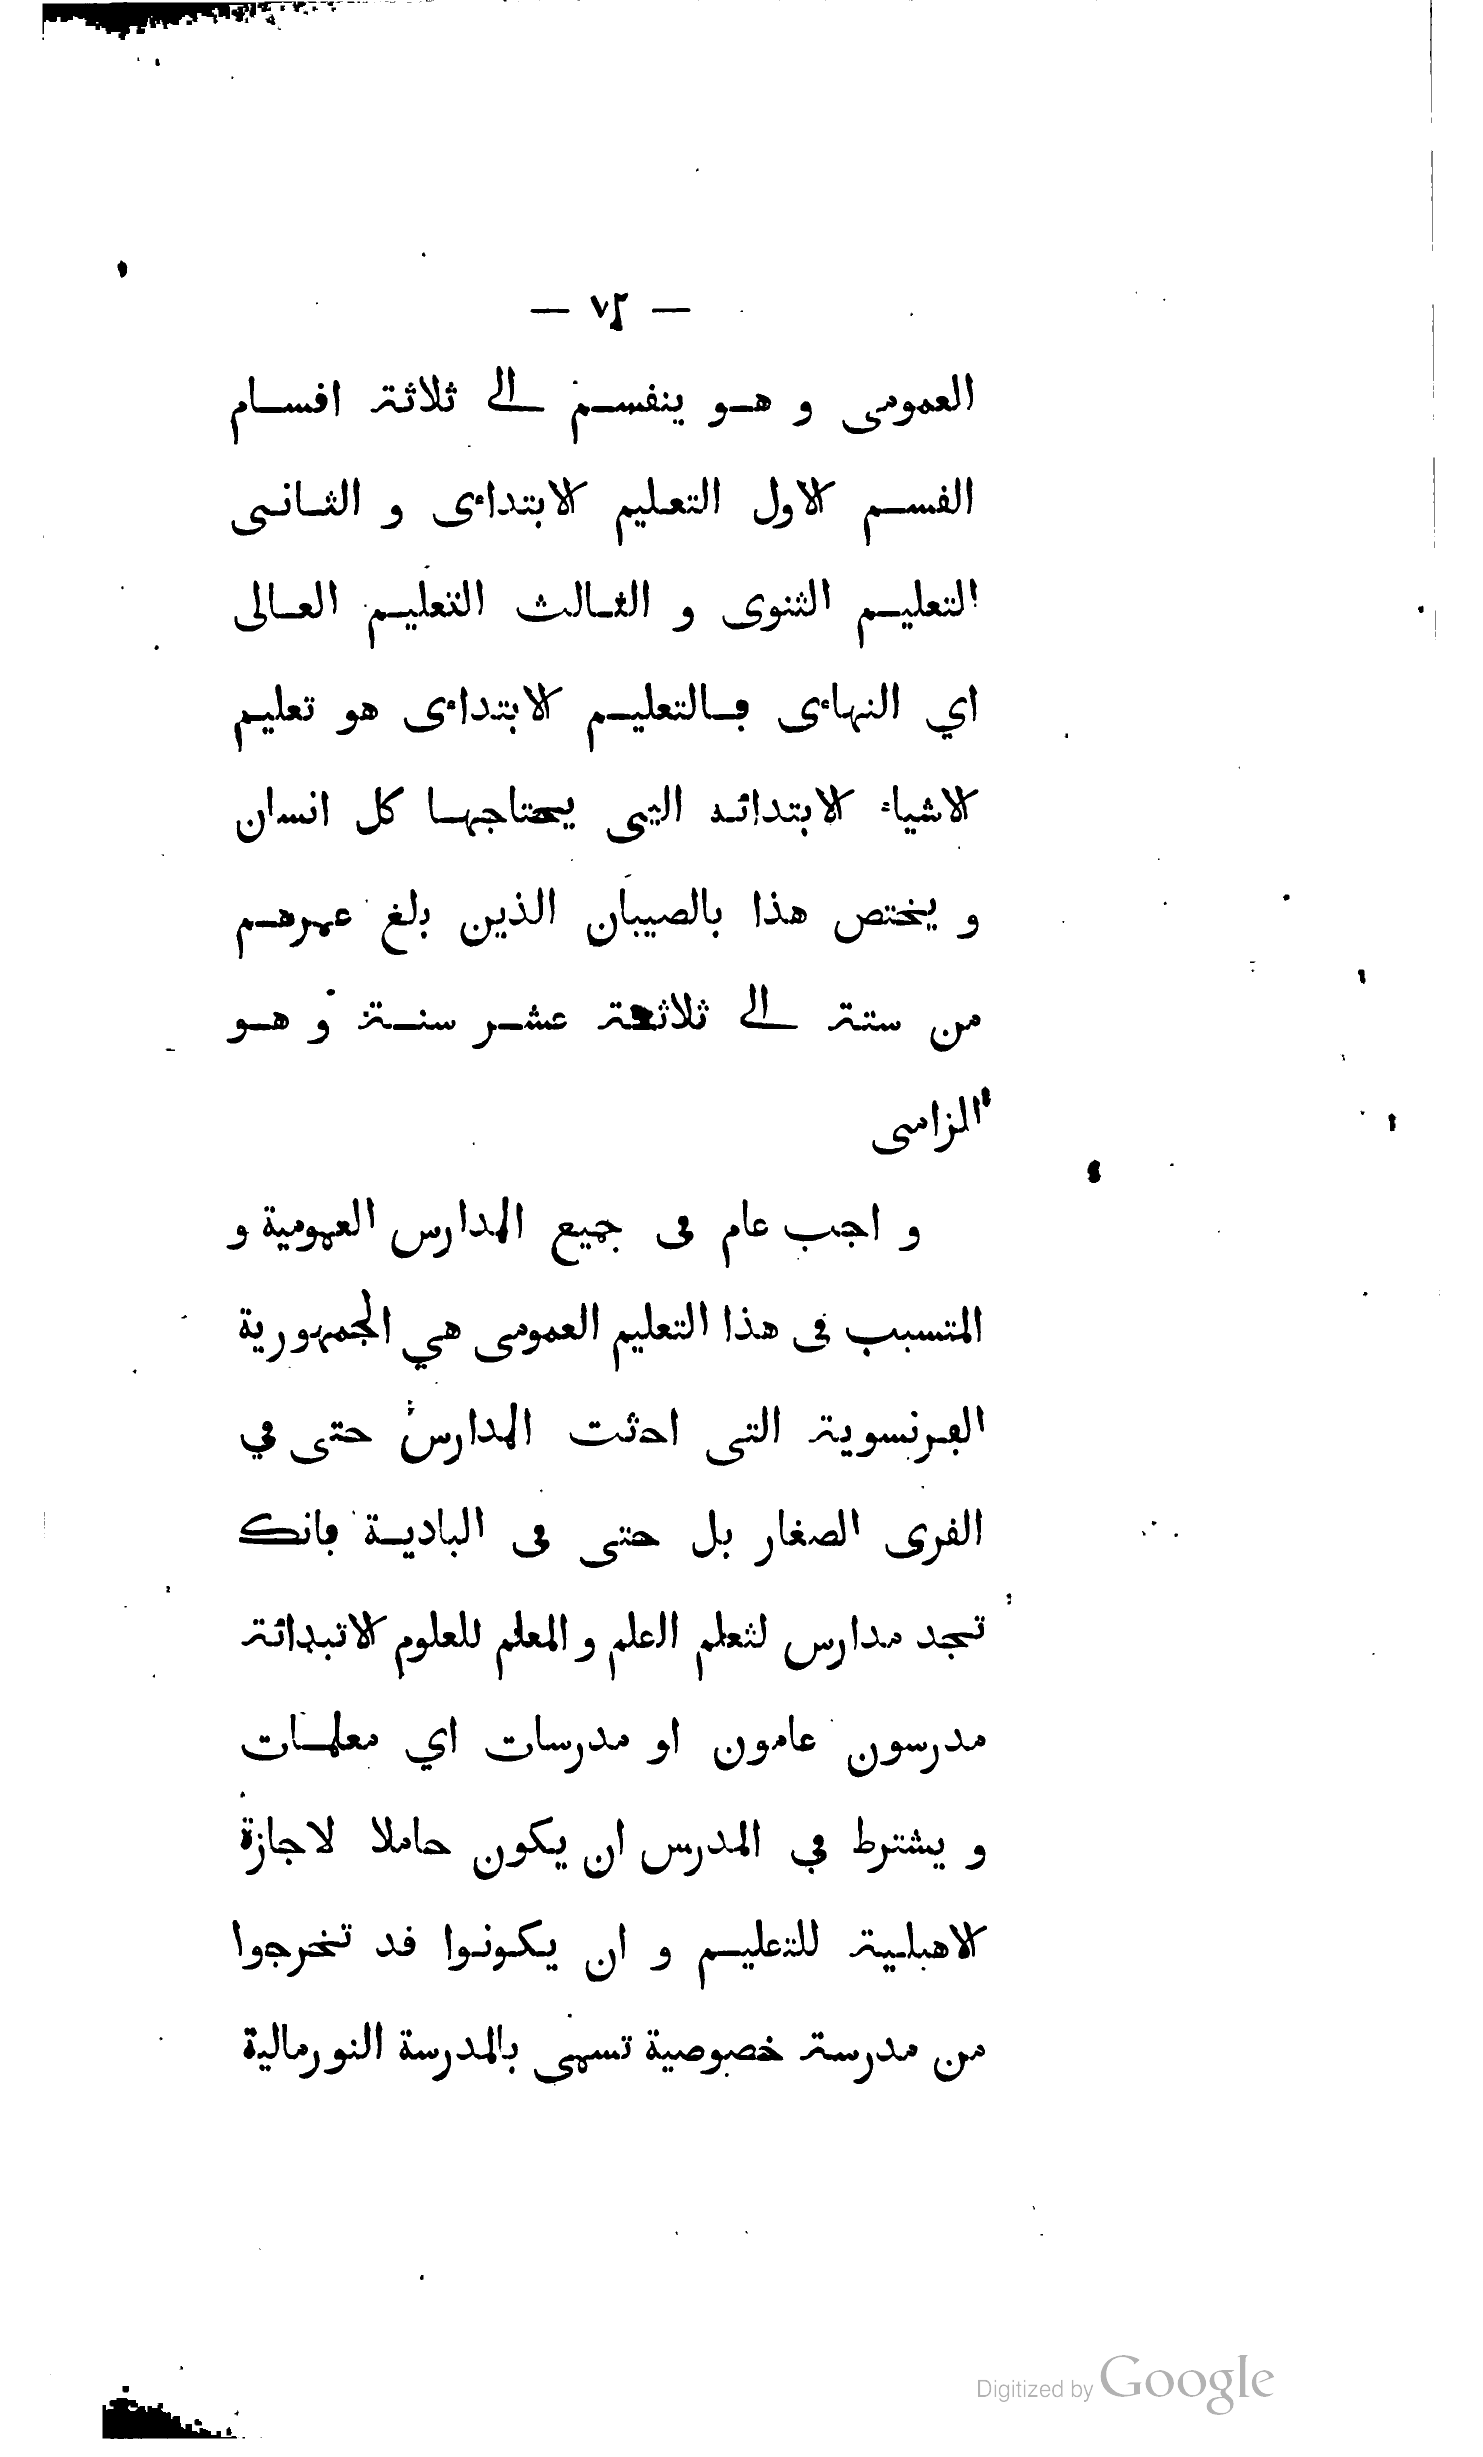 — ٧٢ —
العمومى و هو ينقسم الى ثلاثة اقسام
القسم الاول التعليم الابتداءى و الثانى
التعليم الثنوى و الثالث التعليم العالى
اي النهاءى فالتعليم الابتداءى هو تعليم
الاشياء الابتدائه التى يحتاجها كل انسان
و يختص هذا بالصيبان الذين بلغ عمرهم
من ستة الى ثلاثة عشر سنة و هو
الزامى
و اجب عام فى جميع المدارس العمومية و
المتسبب فى هذا التعليم العمومى هي الجمهورية
الفرنسوية التى احثت المدارس حتى في
القرى الصغار بل حتى فى البادية فانك
تجد مدارس لتعلم العلم و المعلم للعلوم الاتبدائة
مدرسون عامون او مدرسات اي معلمات
و يشترط في المدرس ان يكون حاملا لاجازة
الاهبلية للتعليم و ان يكونوا قد تخرجوا
من مدرسة خصوصية تسمى بالمدرسة النورمالية
Digitized by Google